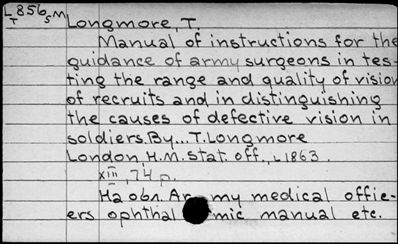 L856sM
T
Longmore, T.
Manual of instructions for the
guidance of army surgeons in tes-
ting the range and quality of vision
of recruits and in distinguishing
the causes of defective vision in
soldiers. By... T. Longmore
London, H.M. stat. off., L1863.
xiii, 74 p.
На обл. Ar my medical offic-
ers ophthal mic manual etc.